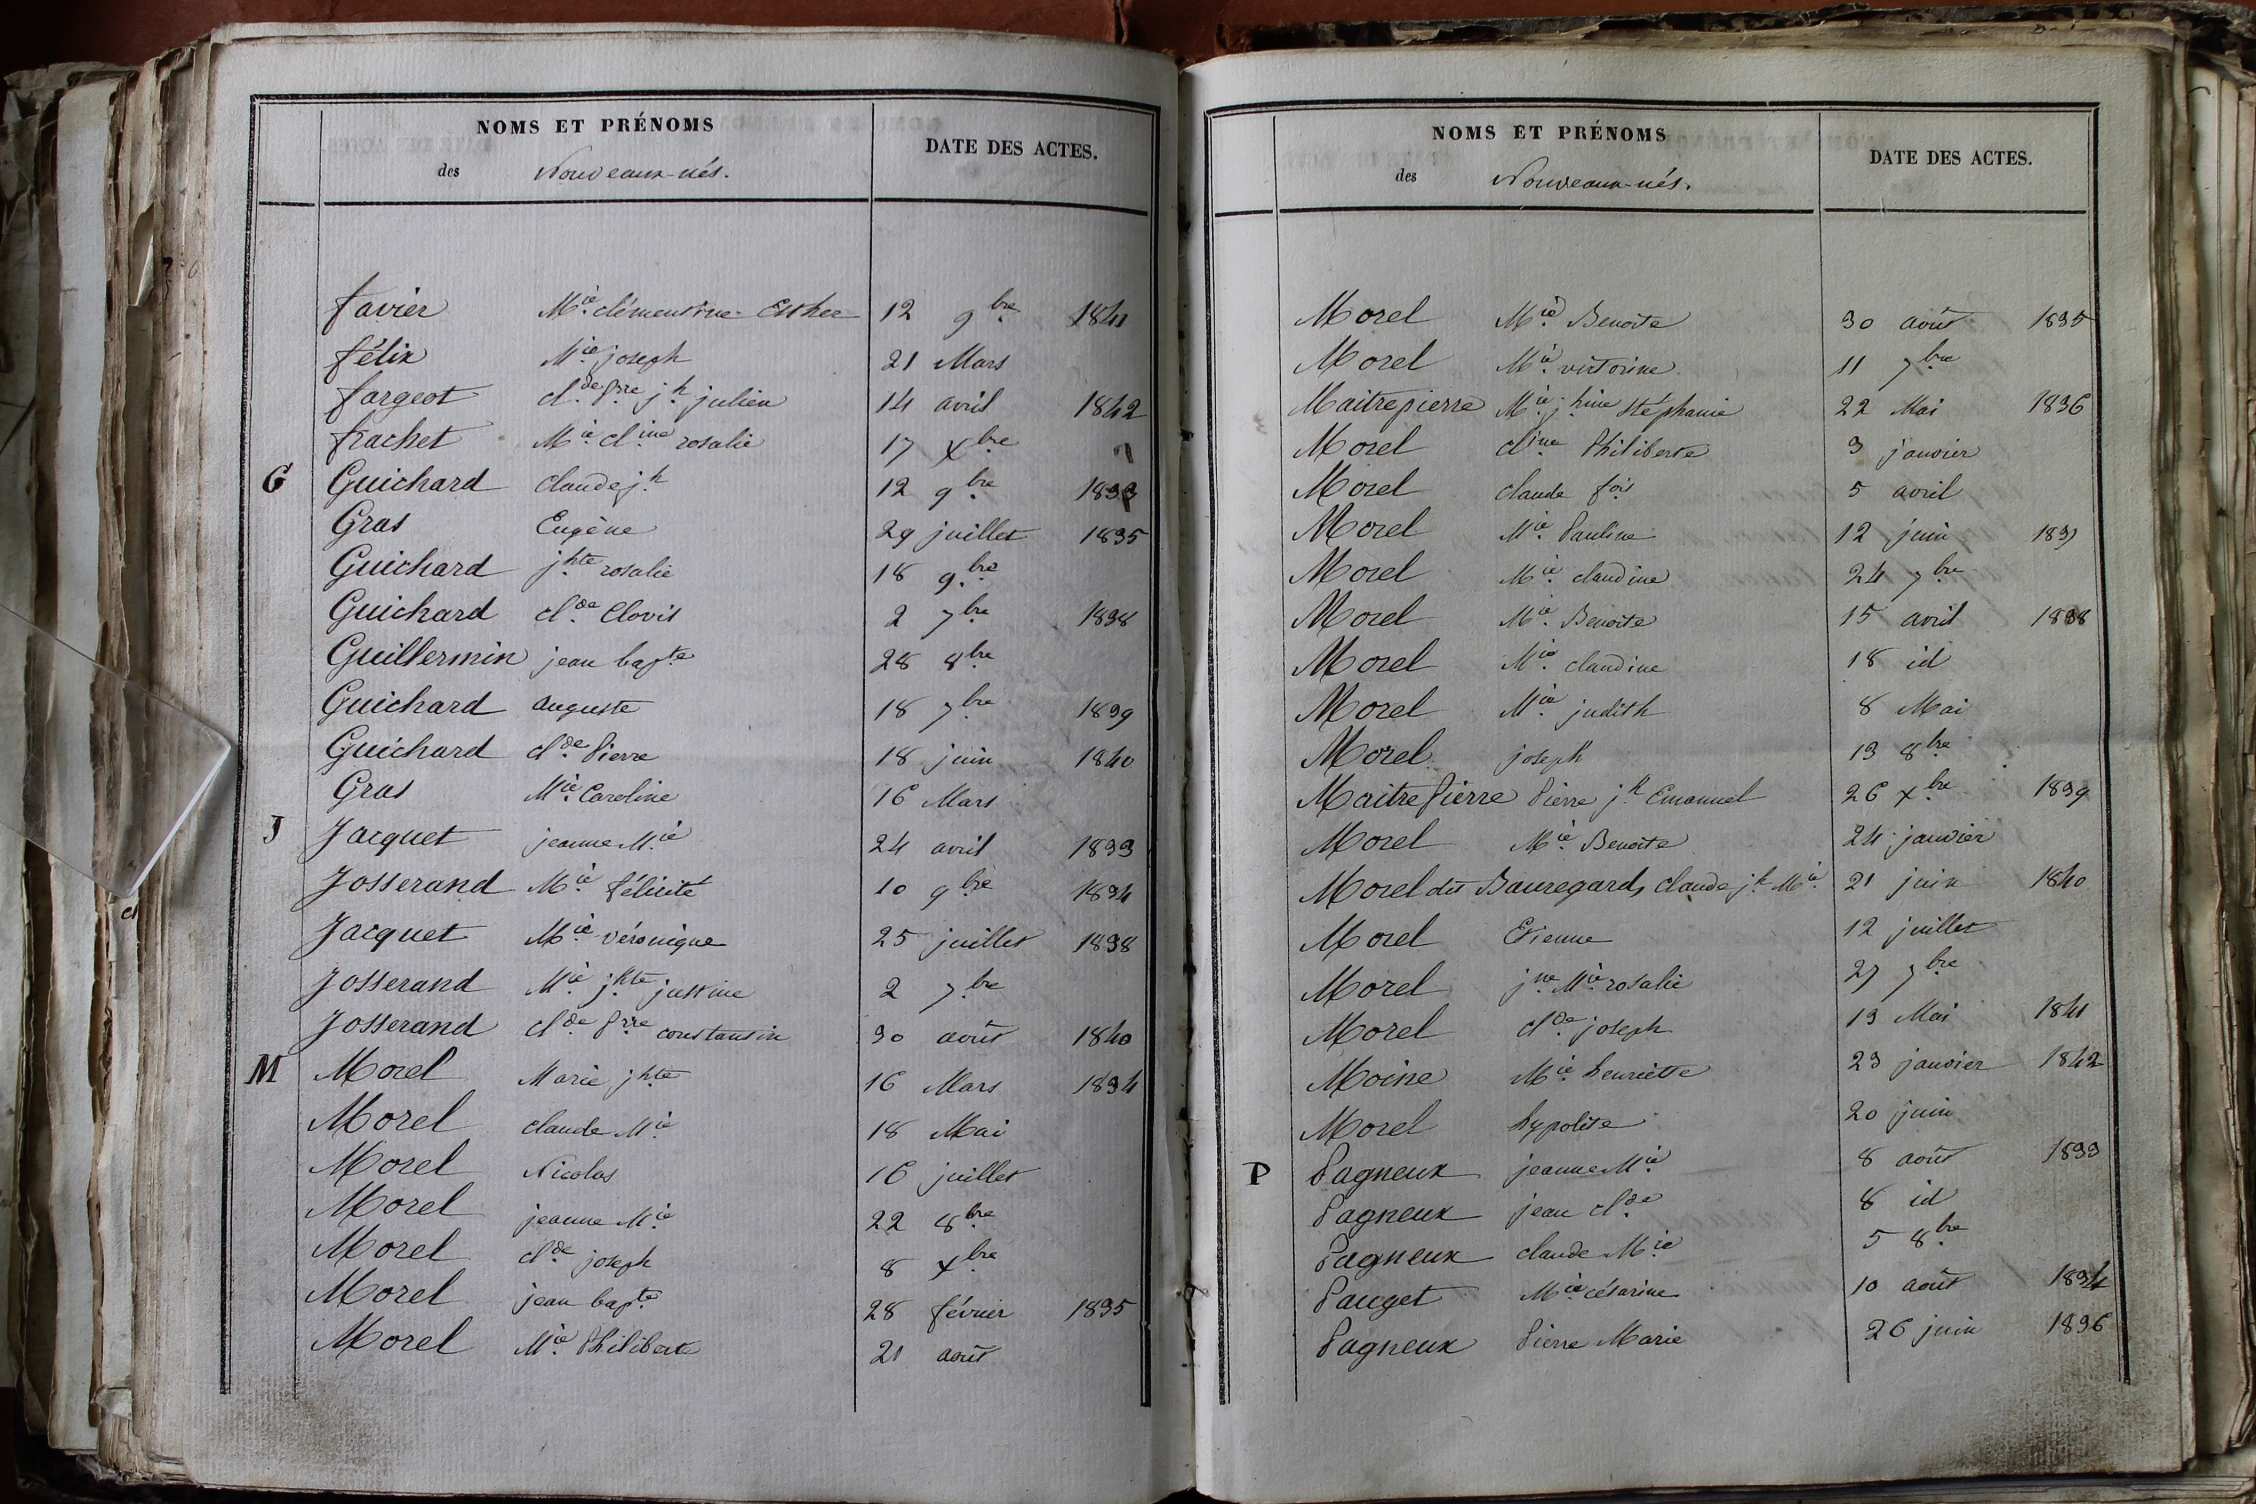 NOMS ET PRÉNOMS
des Nouveaux-nés.
DATE DES ACTES.
favier Mie clémentine Esther 12 9bre 1841
félix Mie joseph 21 Mars
fargeot clde prre jh julien 14 avril 1842
frachet Mie cline rosalie 17 xbre
G Guichard claude jh 12 9bre 1833
Gras Eugène 29 juillet 1835
Guichard jhte rosalie 18 9bre
Guichard clde Clovis 2 7bre 1838
Guillermin jean bapte 28 8bre
Guichard auguste 18 7bre 1839
Guichard clde Pierre 18 juin 1840
Gras Mie Caroline 16 Mars
J Jacquet jeanne Mie 24 avril 1833
Josserand Mie félicité 10 9bre 1834
Jacquet Mie véronique 25 juillet 1838
Josserand Mie jhte justine 2 7bre
Josserand clde prre constantin 30 août 1840
M Morel Marie jhte 16 Mars 1834
Morel claude Mie 18 Mai
Morel Nicolas 16 juillet
Morel jeanne Mie 22 8bre
Morel clde joseph 8 xbre
Morel jean bapte 28 février 1835
Morel Mie Philiberte 21 août
NOMS ET PRÉNOMS
des Nouveaux-nés.
DATE DES ACTES.
Morel Mie Benoite 30 août 1835
Morel Mie victorine 11 7bre
Maitrepierre Mie jhine Stéphanie 22 Mai 1836
Morel cline Philiberte 3 janvier
Morel claude fois 5 avril
Morel Mie Pauline 12 juin 1837
Morel Mie claudine 24 7bre
Morel Mie Benoite 15 avril 1838
Morel Mie claudine 18 id
Morel Mie judith 8 Mai
Morel joseph 13 8bre
MaitrePierre Pierre jh Emanuel 26 xbre 1839
Morel Mie Benoite 24 janvier
Morel dit Bauregard, claude jh Mie 21 juin 1840
Morel Etienne 12 juillet
Morel jne Mie rosalie 27 7bre
Morel clde joseph 13 Mai 1841
Moine Mie henriette 23 janvier 1842
Morel hypolite 20 juin
P Pagneux jeanne Mie 8 août 1833
Pagneux jean clde 8 id
Pagneux claude Mie 5 8bre
Pauget Mie césarine 10 août 1834
Pagneux Pierre Marie 26 juin 1836